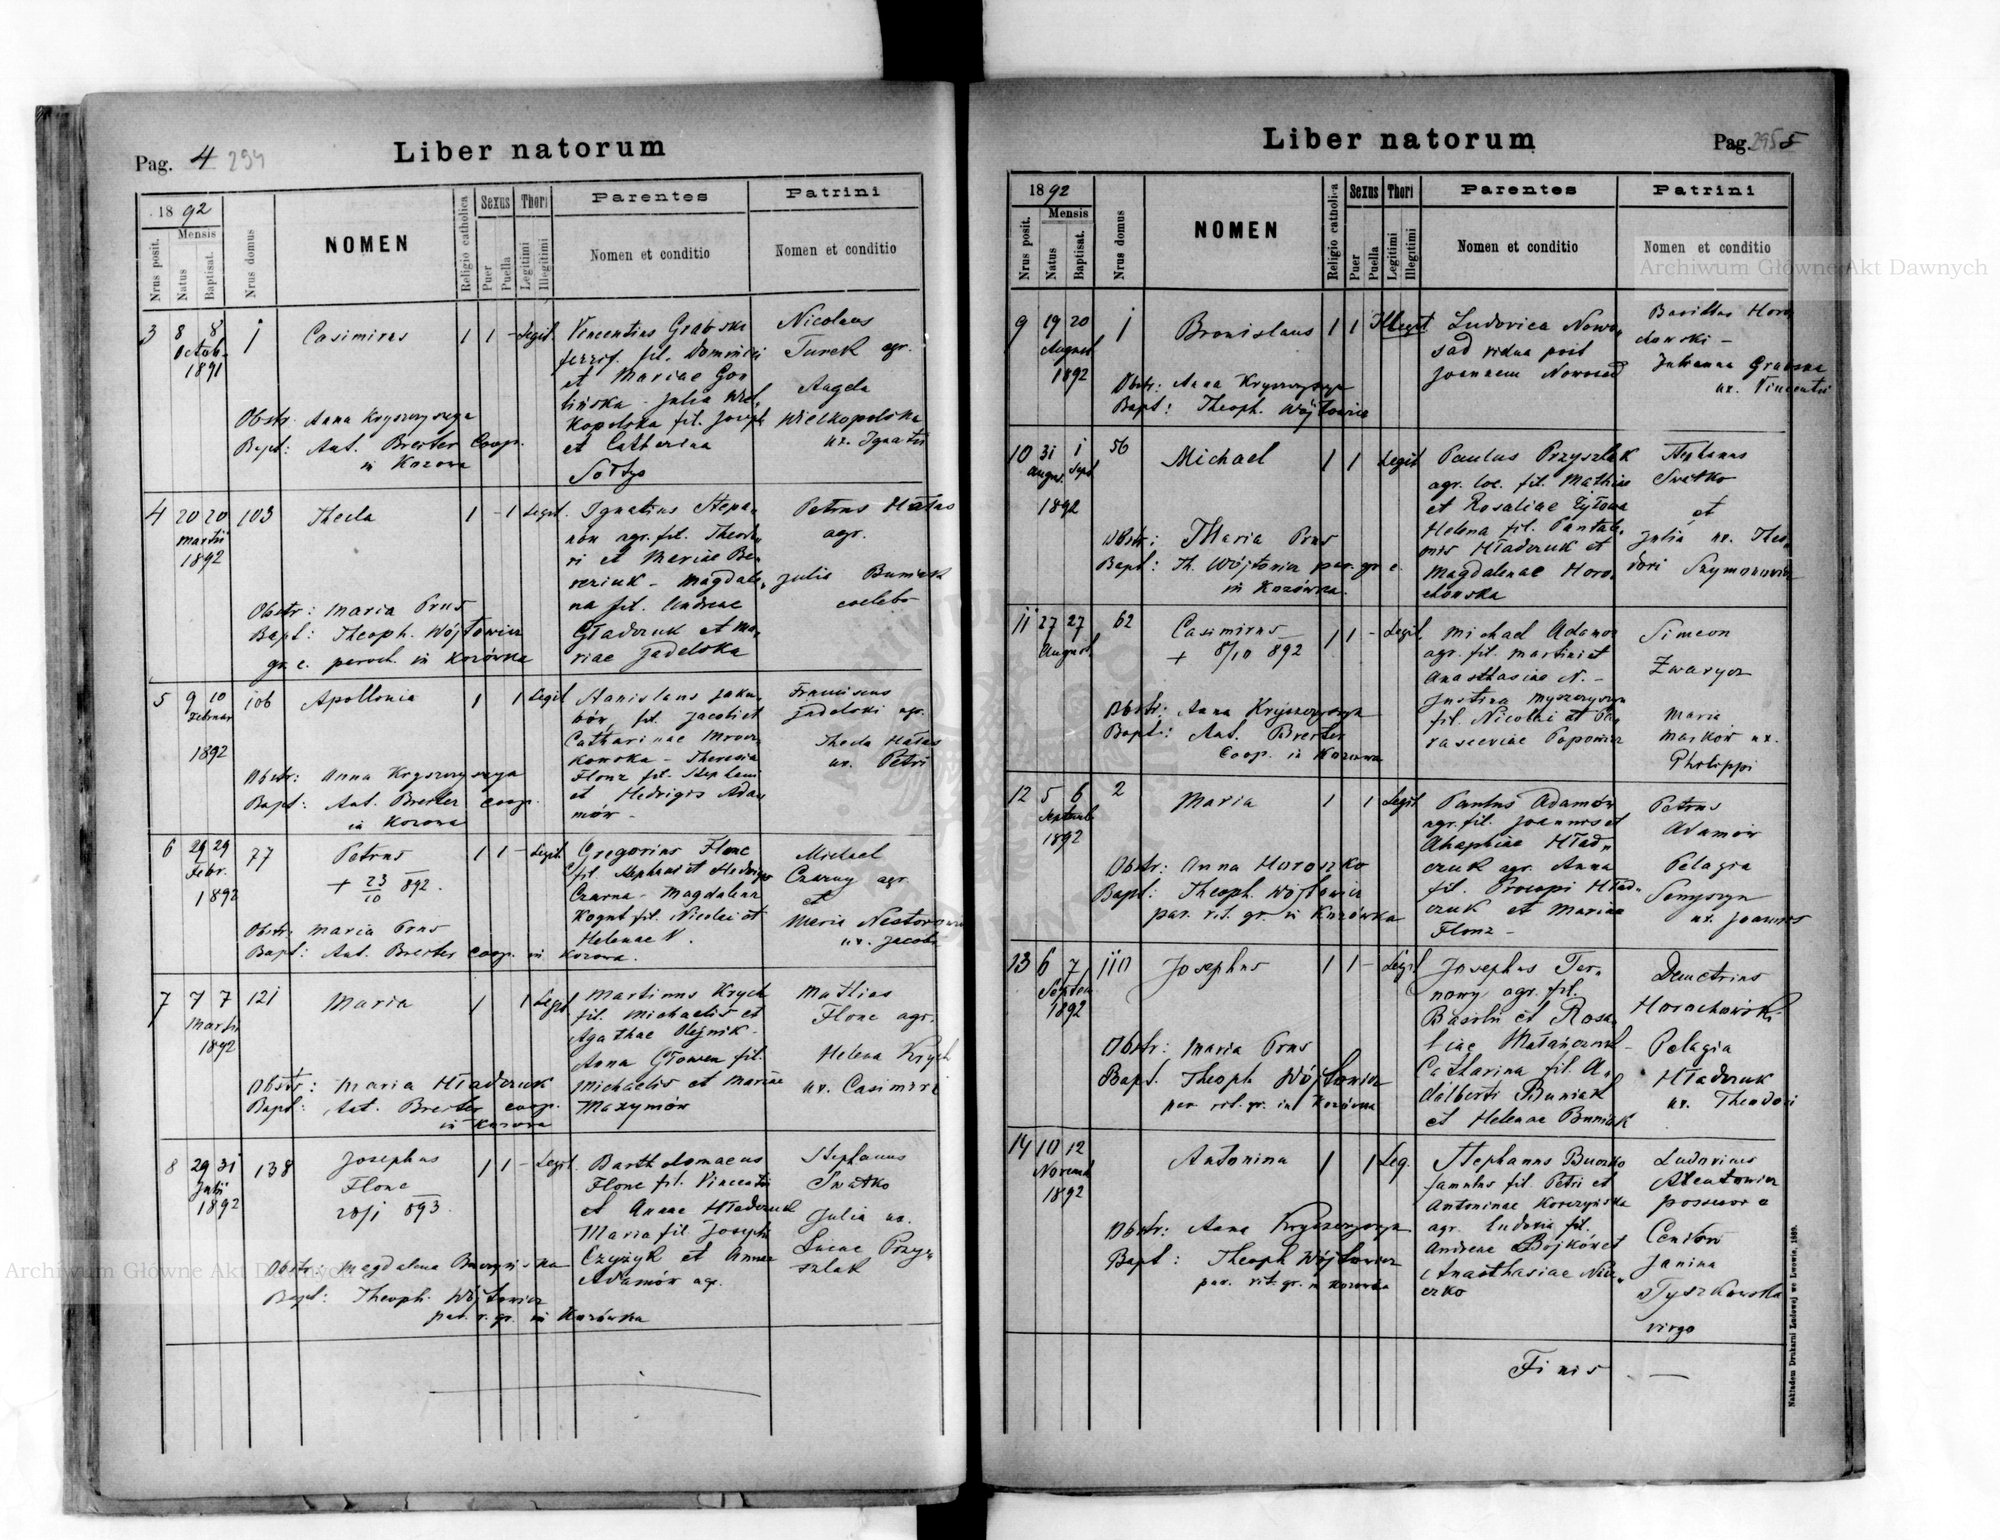 Pag. 4 294
Liber natorum
1892
Mensis
Nrus posit.
Natus
Baptisat.
Nrus domus
NOMEN
Religio catholica
Sexus
Puer
Puella
Thori
Legitimi
Illegitimi
Parentes
Nomen et conditio
Patrini
Nomen et conditio
3 8 8 Octob. 1891
1
Casimirus
1 1 - Legit.
Vincentius Grabski
fil. Dominici
et Mariae Gos
lińska - Julia Wiel
kopolska fil. Joseph
et Catherina
Sołtys
Nicolaus
Turek agr.
Angela
Wielkopolska
ux. Ignatii
Obstr: Anna Kryszczyszyn
Bapt: Ant. Brester Coop.
in Kozowa
4 20 20 Martii 1892
103
Thecla
1 - 1 Legit.
Ignatius Stepa-
non agr. fil. Theodo
ri et Mariae Be-
reziuk - Magdale-
na fil. Andreae
Hładczuk et Ma-
riae Jadelska
Petrus Hałas
agr.
Julia Buniak
coelebs
Obstr: Maria Prus
Bapt: Theoph. Wójtowicz
gr. c. paroch. in Kozówka
5 9 10 Februar 1892
106
Apollonia
1 1 Legit
Stanislaus Jaku-
bów fil. Jacobi et
Catharinae Mrocz
kowska - Theresia
Flonz fil. Stephani
et Hedvigis Ada
mów -
Franciscus
Jadelski agr.
Thecla Hałas
ux. Petri
Obstr: Anna Kryszczyszyn
Bapt: Ant. Brester coop.
in Kozowa
6 29 29 Febr. 1892
77
Petrus
+ 23/10 892.
1 1 - Legit.
Gregorius Flonc
fil. Stephani et Hedvigis
Czarna - Magdalena
Kogut fil. Nicolai et
Helenae N.
Michael
Czarny agr.
et
Maria Nestorowicz
ux. Jacobi
Obstr: Maria Prus
Bapt: Ant. Brester coop. in Kozowa.
7 7 7 Martii 1892
121
Maria
1 1 Legit
Martinus Krych
fil. Michaelis et
Agathae Olejnik -
Anna Głowen fil.
Michaelis et Mariae
Maxymów
Mathias
Flonc agr.
Helena Krych
ux. Casimiri
Obstr: Maria Hładczuk
Bapt: Ant. Brester coop.
in Kozowa
8 29 31 Julii 1892
138
Josephus
Flonc
28/1 893.
1 1 - Legit.
Bartholomaeus
Flonc fil. Vincentii
et Annae Hładczuk
Maria fil. Josephi
Czyżyk et Annae
Adamów agr.
Stephanus
Swatko
Julia ux.
Lucae Przy-
szlak
Obstr: Magdalena
Bapt: Theoph. Wójtowicz
par. r. gr. in Kozówka
Pag. 295 5
Liber natorum
1892
Mensis
Nrus posit.
Natus
Baptisat.
Nrus domus
NOMEN
Religio catholica
Sexus
Puer
Puella
Thori
Legitimi
Illegitimi
Parentes
Nomen et conditio
Patrini
Nomen et conditio
9 19 20 August 1892
1
Bronislaus
1 1 Illegit
Ludovica Nowo-
sad vidua post
Joannem Nowosad
Basilius Horo
chowski -
Julianna Grabska
ux. Vincentii
Obstr: Anna Kryszczyszyn
Bapt: Theoph. Wójtowicz
10 31 1 August Sept 1892
56
Michael
1 1 Legit
Paulus Przyszlak
agr. loc. fil. Mathiae
et Rosaliae Żyłowa
Helena fil. Pantale
monis Hładczuk et
Magdalenae Horo
chowska
Stephanus
Swatko
et
Julia ux. Theo-
dori Szymonowicz
Obstr: Maria Prus
Bapt: Th. Wójtowicz par. gr. c.
in Kozówka.
11 27 27 August
62
Casimirus
+ 8/10 892
1 1 - Legit
Michael Adamów
agr. fil. Martini et
Anasthasiae N. -
Justina Myszczyszyn
fil. Nicolai et Pa-
rasceviae Popowicz
Simeon
Zwarycz
Maria
Marków ux.
Philippi
Obstr: Anna Kryszczyszyn
Bapt: Ant. Brester
Coop. in Kozowa
12 5 6 Septemb 1892
2
Maria
1 1 Legit
Paulus Adamów
agr. fil. Joannis et
Ahaphiae Hład-
czuk agr. Anna
fil. Procopi Hład-
czuk et Mariae
Flonz -
Petrus
Adamów
Pelagia
Senyszyn
ux. Joannis
Obstr: Anna Horoszko
Bapt: Theoph. Wójtowicz
par. rit. gr. in Kozówka
13 6 7 Septem 1892
110
Josephus
1 1 - Legit
Josephus Ter-
nowy agr. fil.
Basilii et Rosa-
liae Matańczuk -
Catharina fil. A-
dalberti Buniak
et Helenae Buniak
Demetrius
Horochowski
Pelagia
Hładczuk
ux. Theodori
Obstr: Maria Prus
Bapt. Theoph Wójtowicz
par rit. gr. in Kozówka
14 10 12 Novemb 1892
Antonina
1 1 Leg.
Stephanus Buczko
famulus fil Petri et
Antoninae Korczyńska
agr. Ludovica fil.
Andreae Bojków et
Anasthasiae
czko
Ludovicus
possessor e
Ceniów
Janina
Tyszkowska
virgo
Obstr: Anna Kryszczyszyn
Bapt: Theoph Wójtowicz
par. rit. gr. in Kozówka
Finis -
Nakładem Drukarni Ludowej we Lwowie, 1889.
Archiwum Główne Akt Dawnych
Archiwum Główne Akt Dawnych